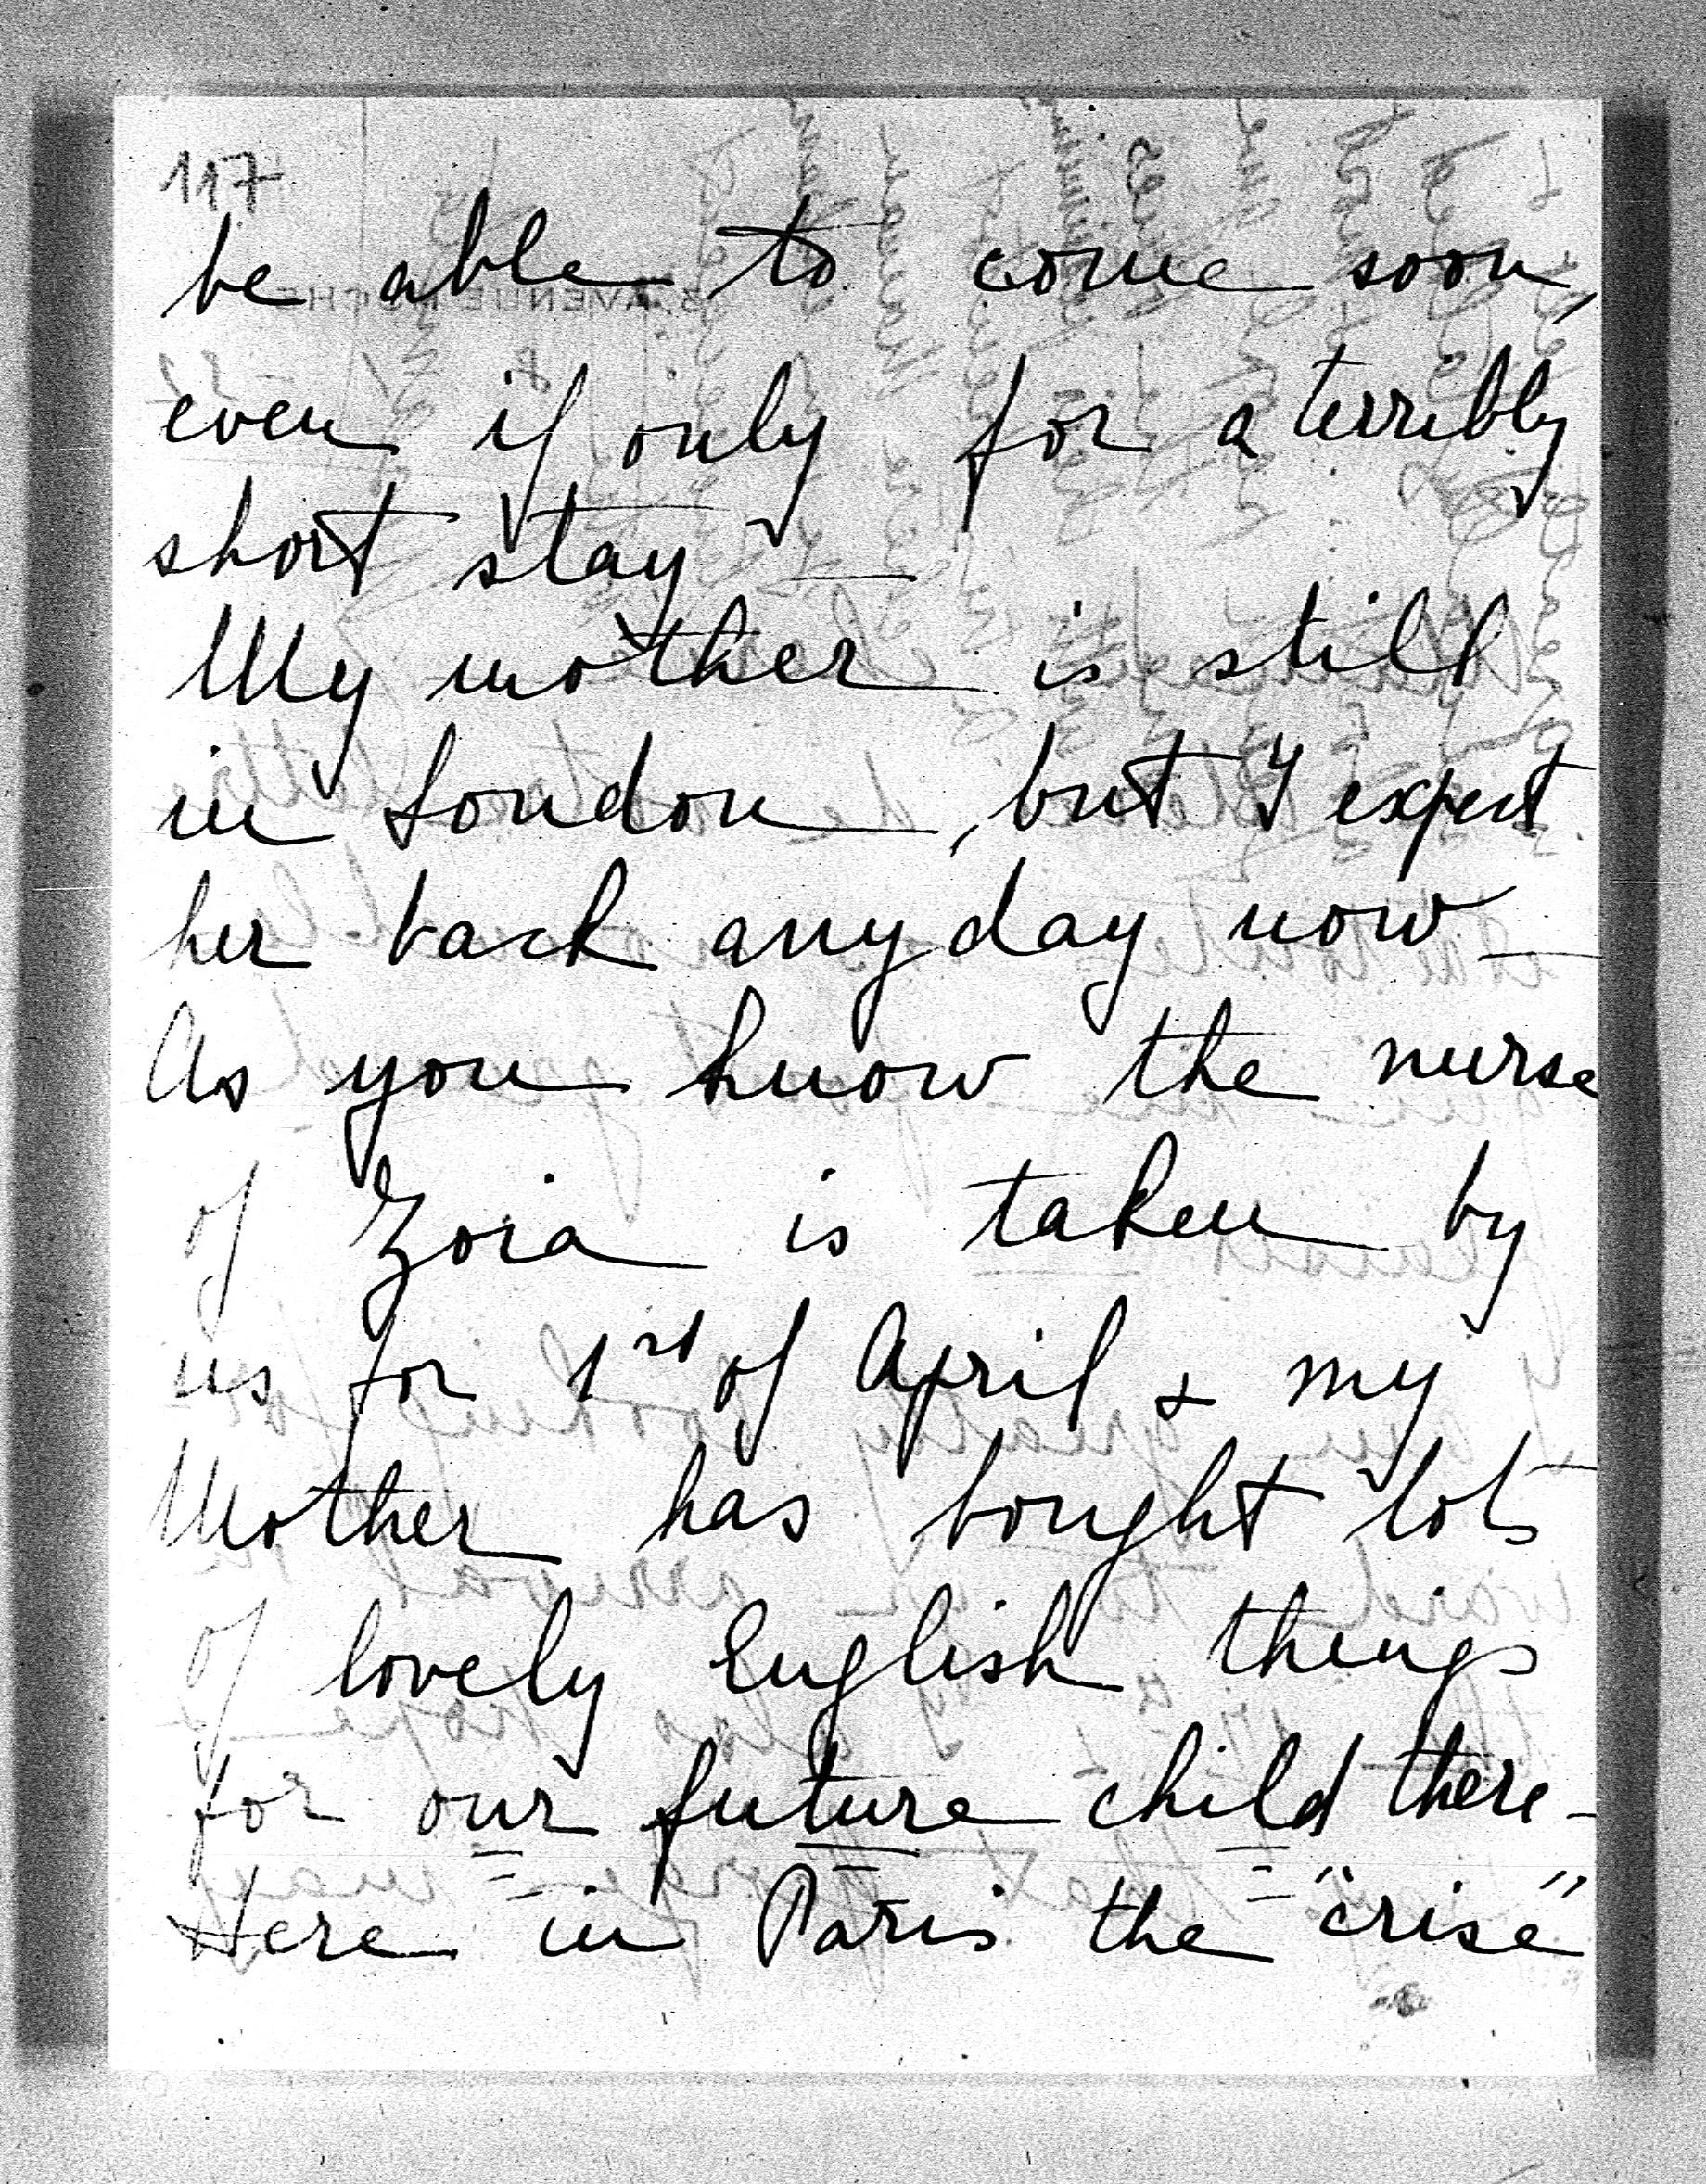 117
be able to come soon,
even if only for a terribly
short stay —
My mother is still
in London, but I expect
her back any day now —
As you know the nurse
of Zoia is taken by
us for 1rst of April & my
Mother has bought lots
of lovely English things
for our future child there -
Here in Paris the "crise"